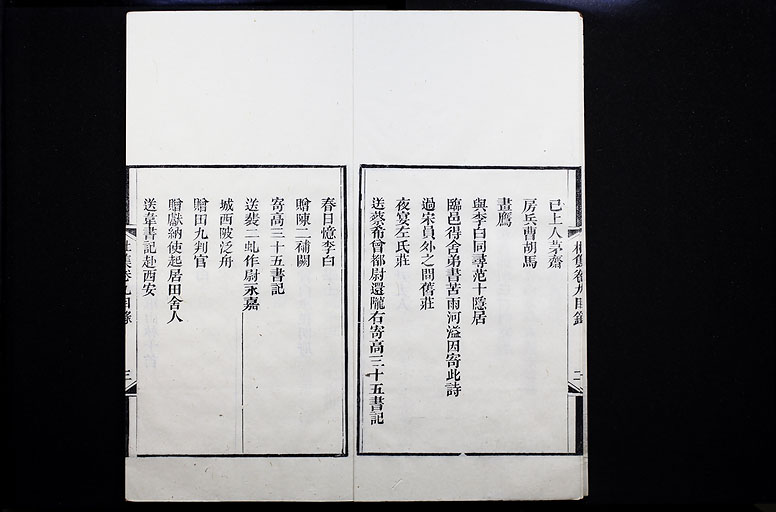 已上人茅齋
房兵曹胡馬
畫鷹
與李白同尋范十隱居
臨邑舍弟書苦雨河溢因寄此詩
過宋員外之問舊莊
夜宴左氏莊
送蔡希曾都尉還隴右寄高三十五書記
春日憶李白
贈陳二補闕
寄高三十五書記
送裴二虬作尉永嘉
城西陂泛舟
贈田九判官
贈獻納使起居田舍人
送韋書記赴西安
杜集卷九目錄
三